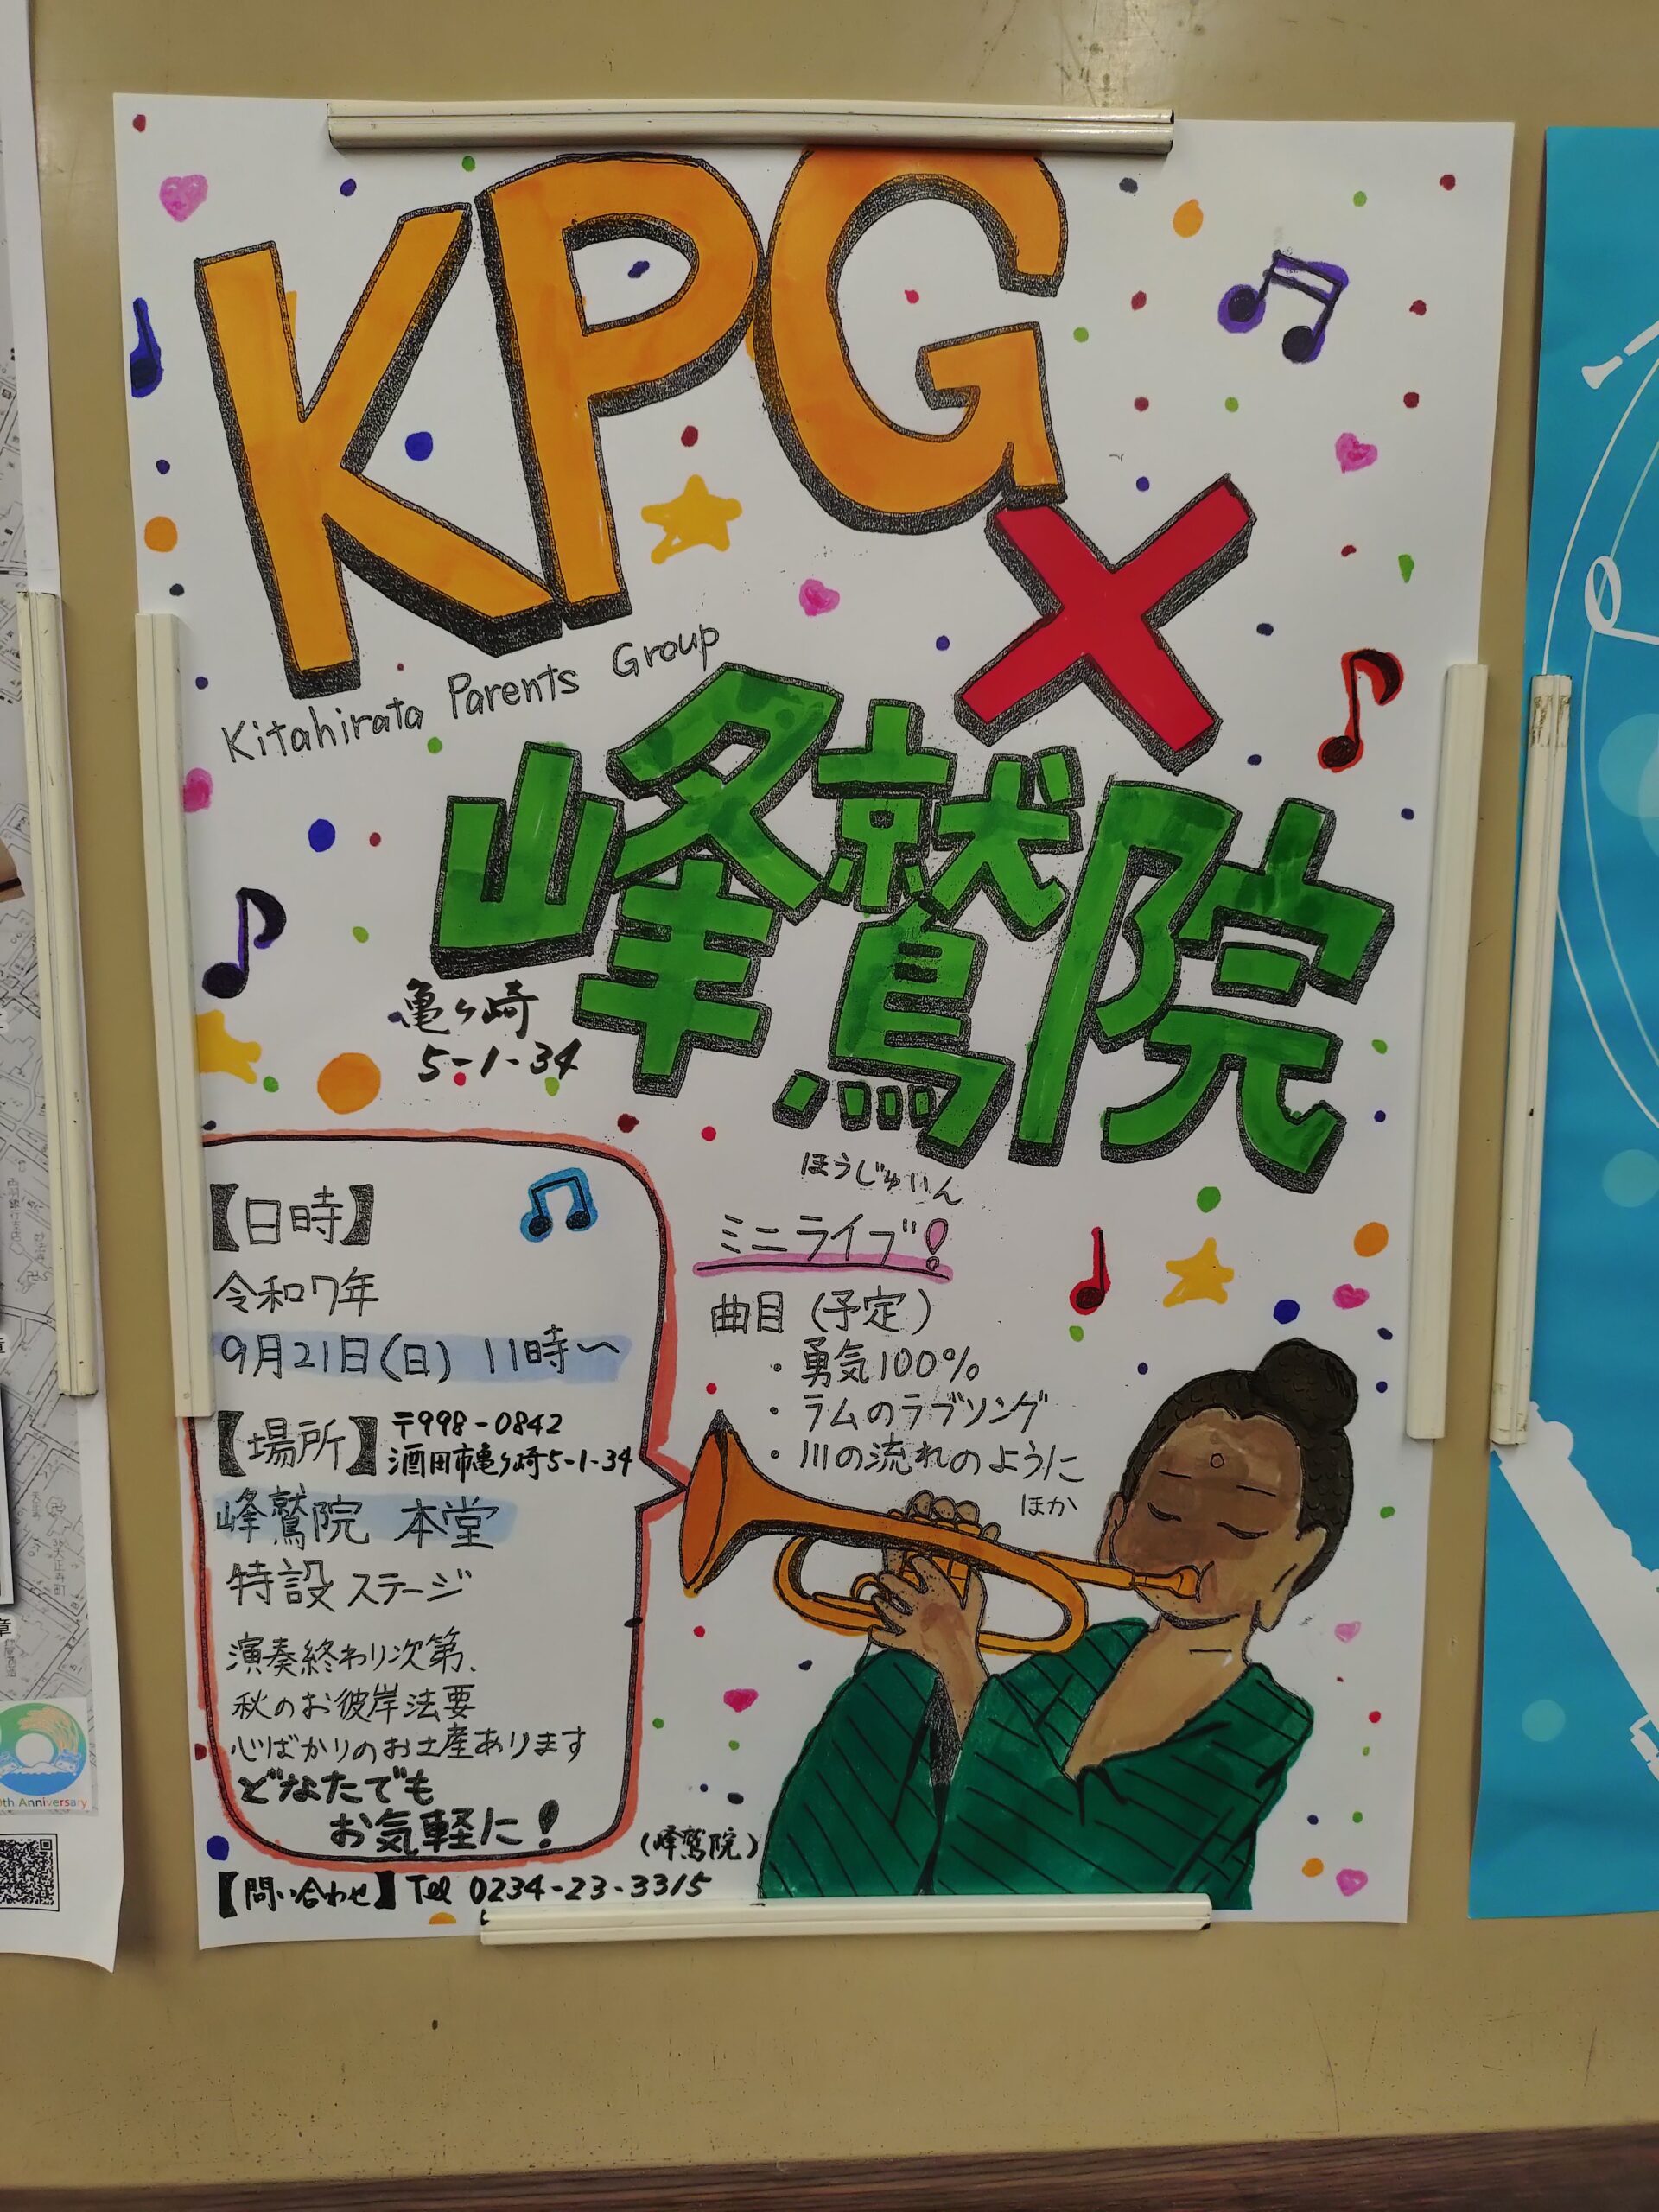 KPG
×
Kitahirata Parents Group
峰鷲院
亀ヶ崎
5-1-34
ほうじゅいん
【日時】
令和7年
9月21日(日) 11時〜
【場所】
〒998-0842
酒田市亀ヶ崎5-1-34
峰鷲院 本堂
特設ステージ
演奏終わり次第、
秋のお彼岸法要
心ばかりのお土産あります
どなたでも
お気軽に!
ミニライブ!
曲目(予定)
・勇気100%
・ラムのラブソング
・川の流れのように
ほか
(峰鷲院)
【問い合わせ】Tel 0234-23-3315
th Anniversary